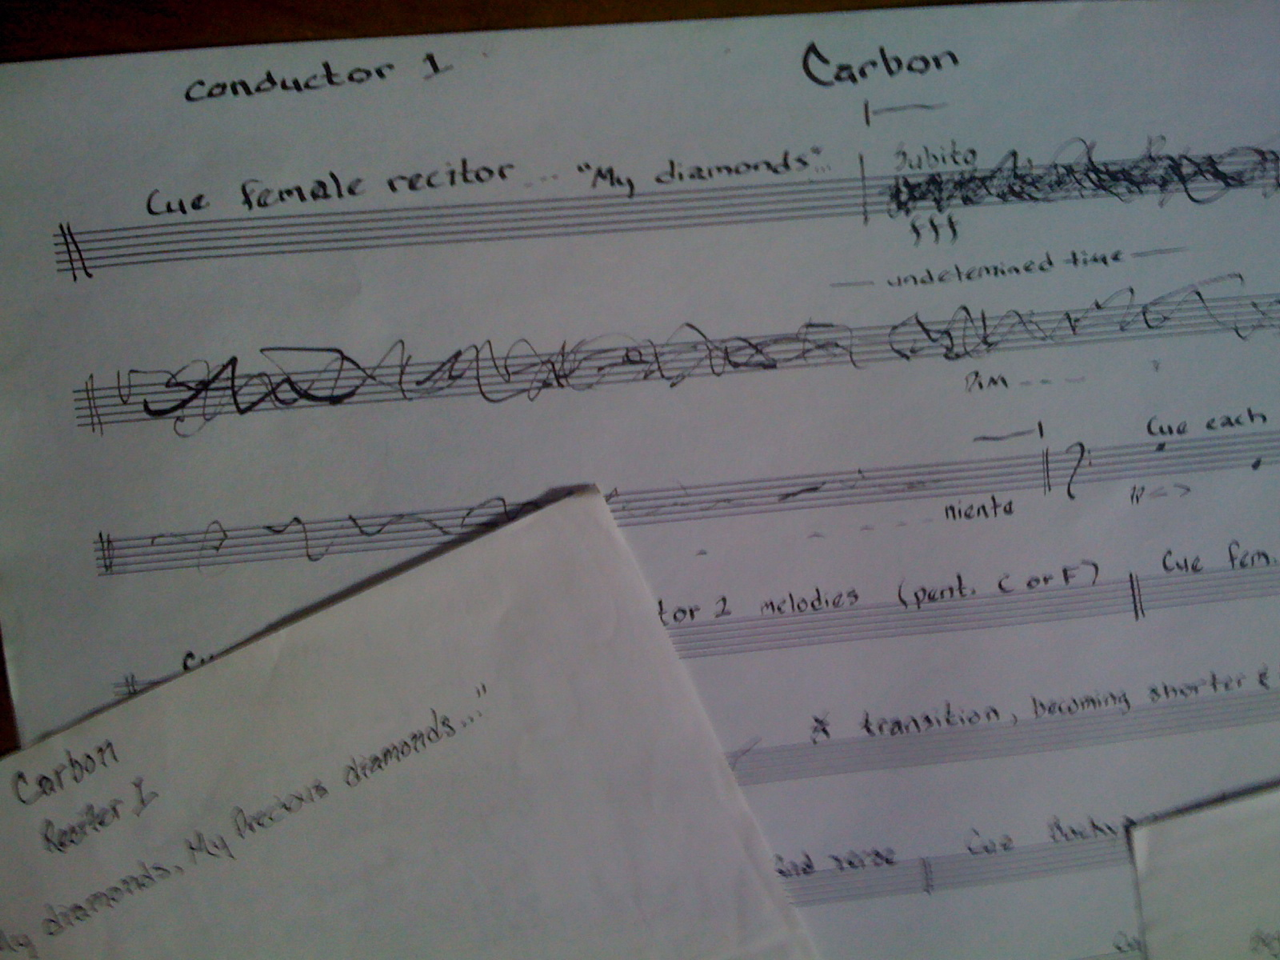 conductor 1
Carbon
Cue female recitor ... "My diamonds"...
Subito
fff
undetemined time
Dim - - -
Cue each
niente
tor 2 melodies (pent. C or F)
Cue fem.
* transition, becoming shorter &
verse
Cue
Carbon
Reciter I
My diamonds, My Precious diamonds..."